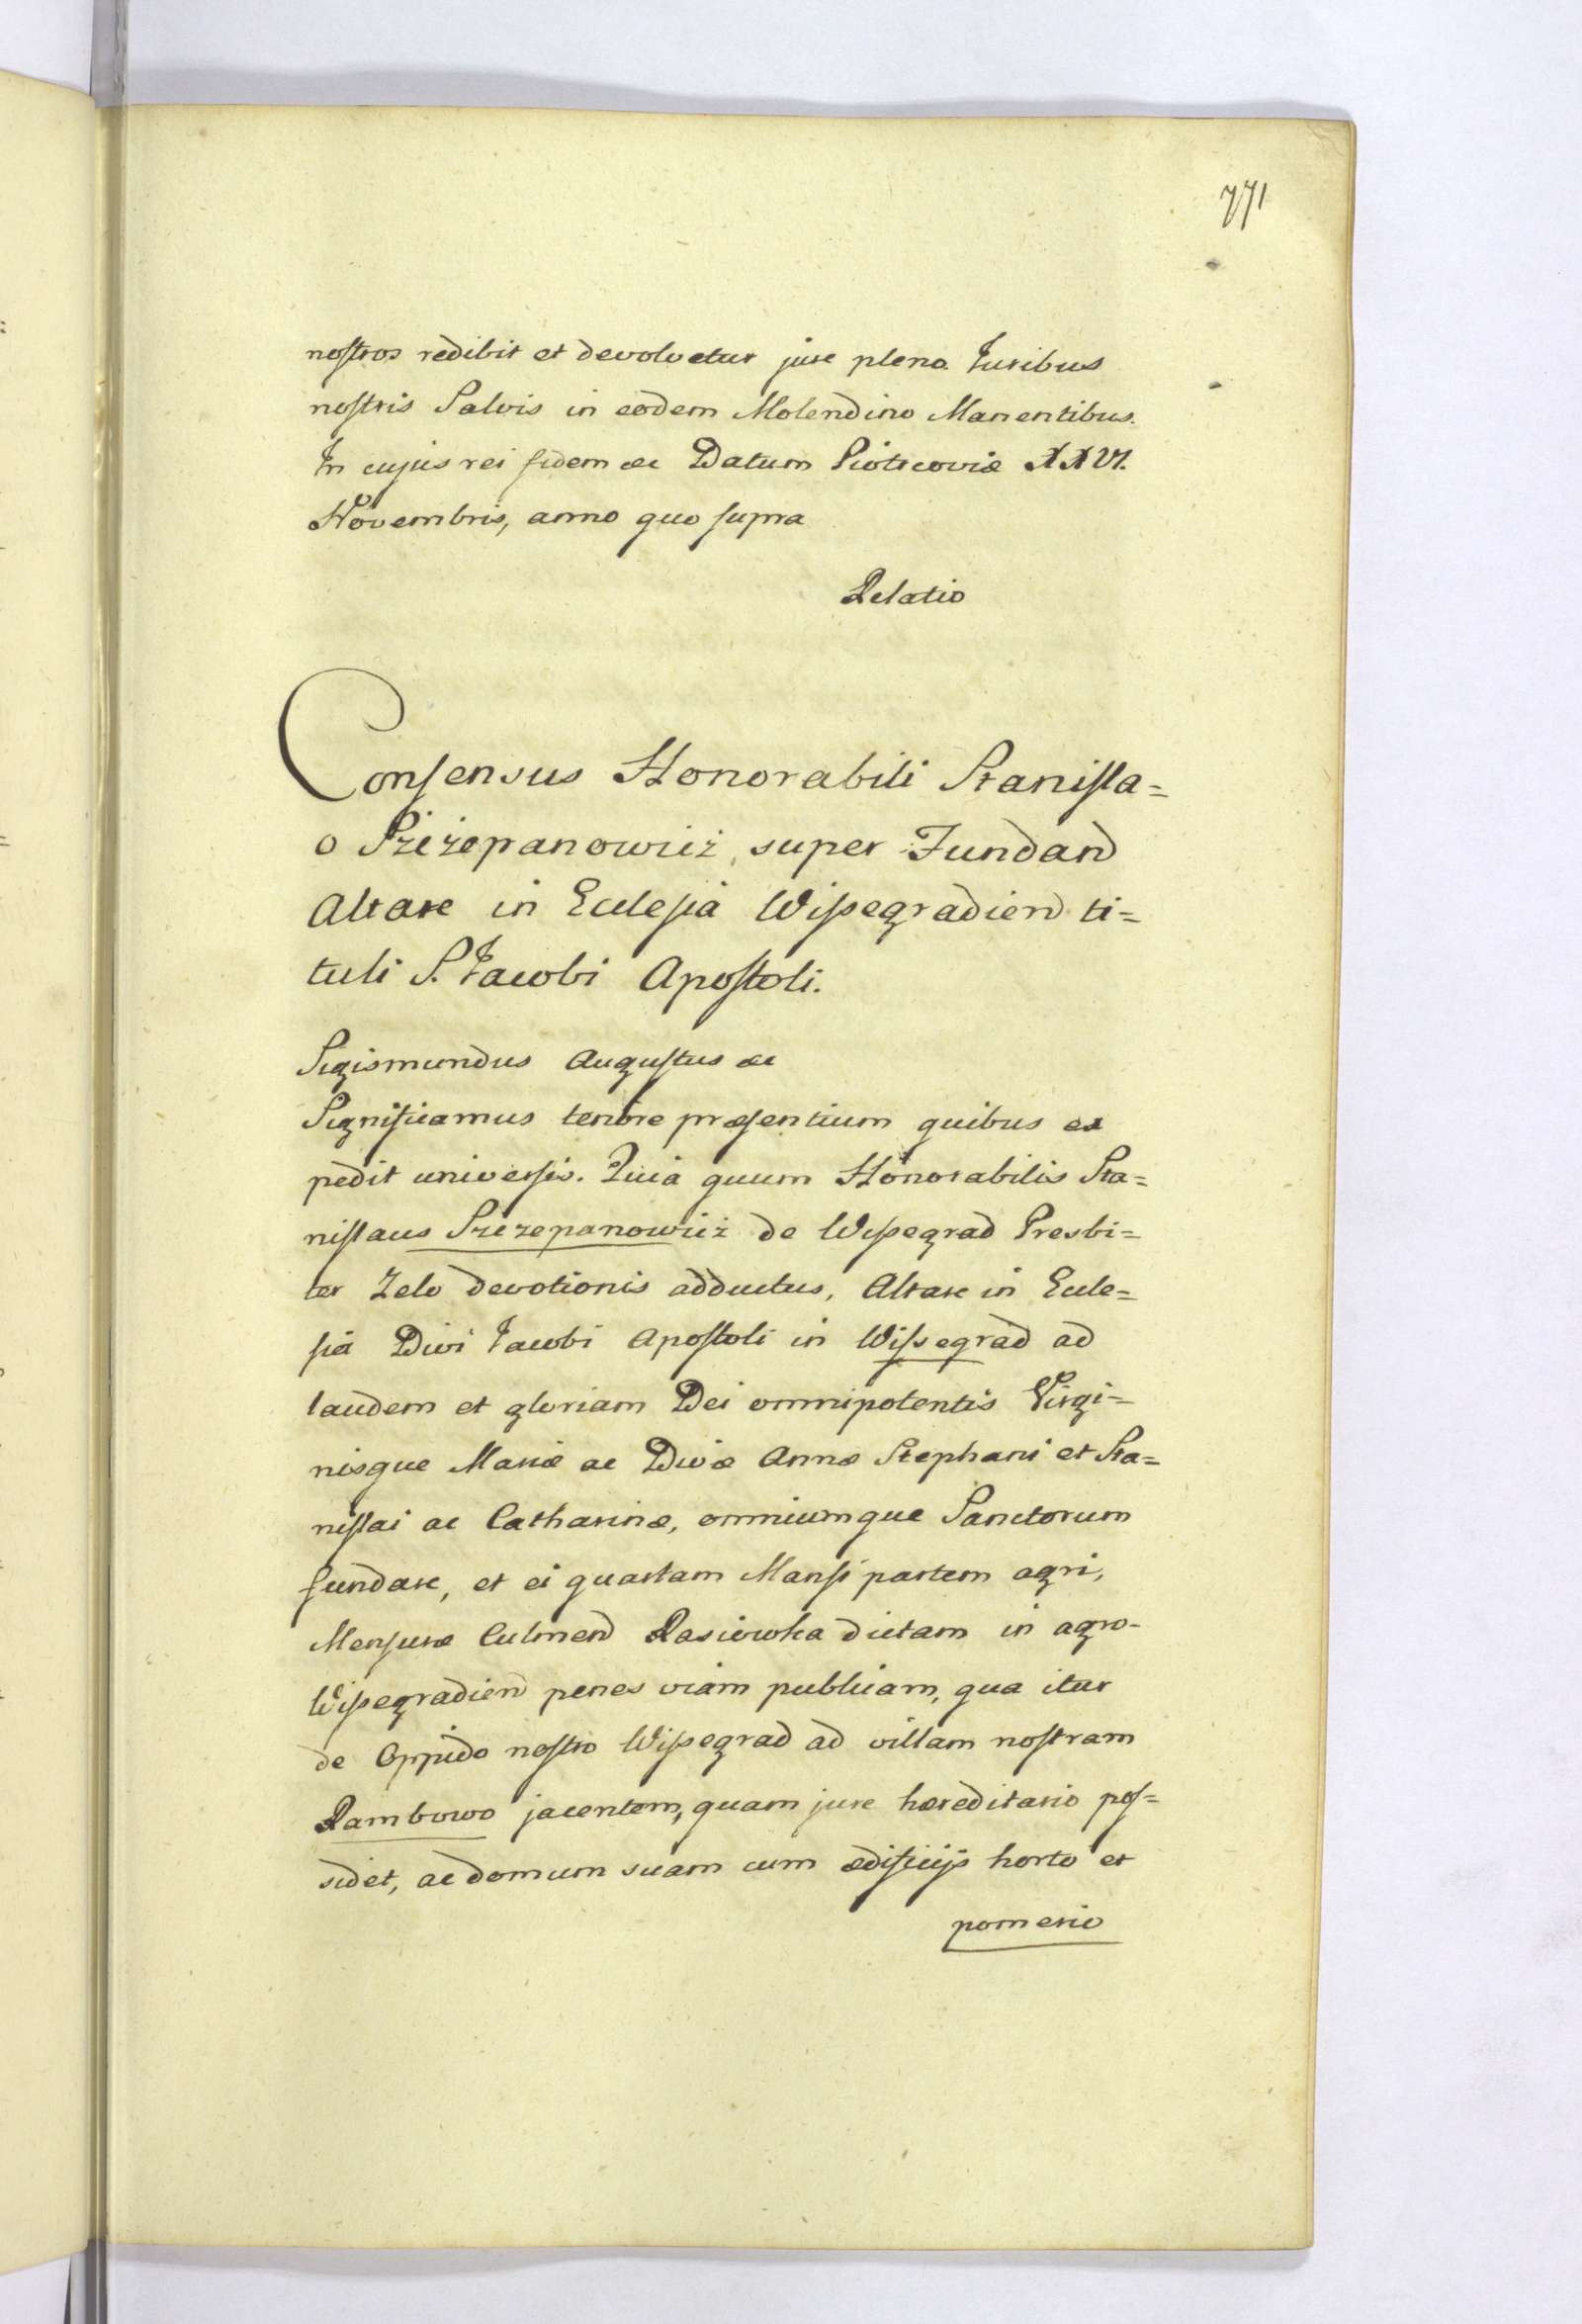 771
nostros redibit et devolvetur jure pleno. Iuribus
nostris Salvis in eodem Molendino Manentibus.
In cujus rei fidem ac Datum Piotrcoviæ XXVI.
Novembris, anno quo supra
Relatio
Consensus Honorabili Stanisla=
o Szczepanowicz super Fundand
Altare in Eclesia Wissegradien ti=
tuli S. Iacobi Apostoli.
Sigismundus Augustus ac
Significamus tenore præsentium quibus ex
pedit universis. Quia quum Honorabilis Sta=
nislaus Szczepanowicz de Wissegrad Presbi=
ter Zelo devotionis adductus, Altare in Ecle=
sia Divi Iacobi Apostoli in Wissegrad ad
laudem et gloriam Dei omnipotentis Virgi=
nisque Mariæ ac Divæ Annæ Stephani et Sta=
nislai ac Catharinæ, omniumque Sanctorum
fundare, et ei quartam Mansi partem agri,
Mensuræ Culmend Rasiowka dictam in agro-
Wissegradien penes viam publicam, qua itur
de Oppido nostro Wissegrad ad villam nostram
Rambowo jacentem, quam jure hæreditario pos=
sidet, ac domum suam cum ædificijs horto et
pomerio